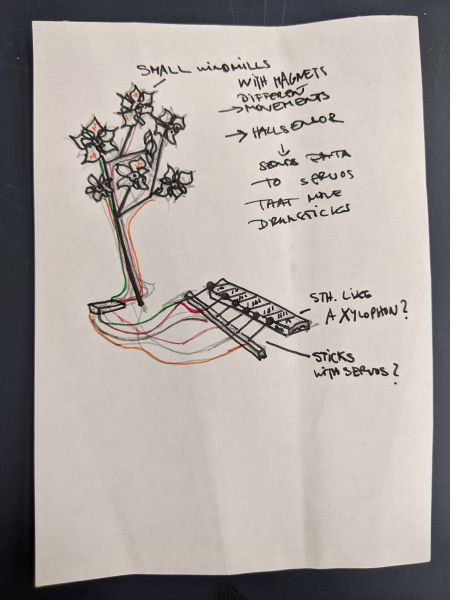 SMALL WINDMILLS
WITH MAGNETS
DIFFERENT
→ MOVEMENTS
→ HALLSENSOR
↓
SENDS DATA
TO SERVOS
THAT MOVE
DRUMSTICKS
STH. LIKE
A XYLOPHON?
STICKS
WITH SERVOS?